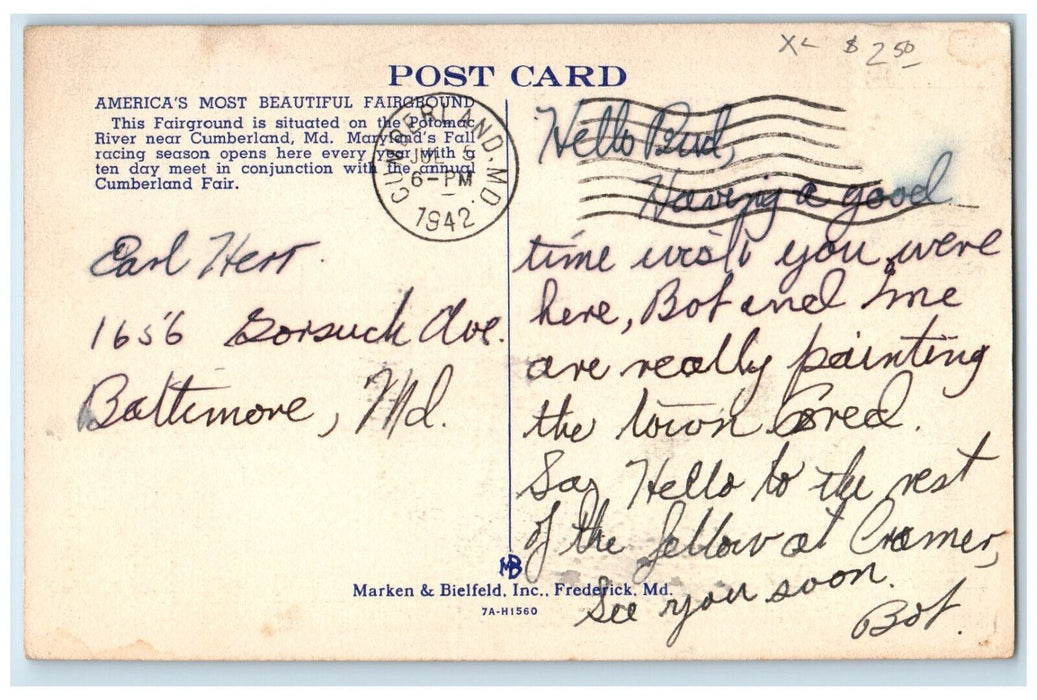 XL $2.50
POST CARD
AMERICA'S MOST BEAUTIFUL FAIRGROUND
This Fairground is situated on the Potomac
River near Cumberland, Md. Maryland's Fall
racing season opens here every year with a
ten day meet in conjunction with the annual
Cumberland Fair.
CUMBERLAND. MD.
JUL 5
6-PM
1942
Earl Herr.
1656 Gorsuch Ave.
Baltimore, Md.
Hello Bud,
Having a good
time wish you were
here, Bot and me
are really painting
the town red.
Say Hello to the rest
of the fellow at Cramer,
See you soon.
Bot.
MB
Marken & Bielfeld, Inc., Frederick, Md.
7A-H1560